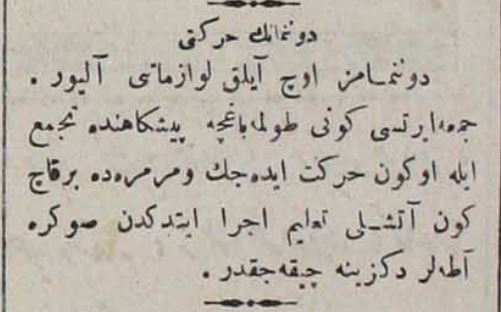 دوننمانك حركتی
دوننمامز اوچ آیلق لوازماتی آلیور .
جمعه‌ایرتسی كونی طولمه‌باغچه پیشكاهنده تجمع
ایله اوكون حركت ایده‌جك ومرمره‌ده برقاچ
كون آتشلی تعلیم اجرا ایتدكدن صوكره
آطه‌لر دكزینه چیقه‌جقدر .